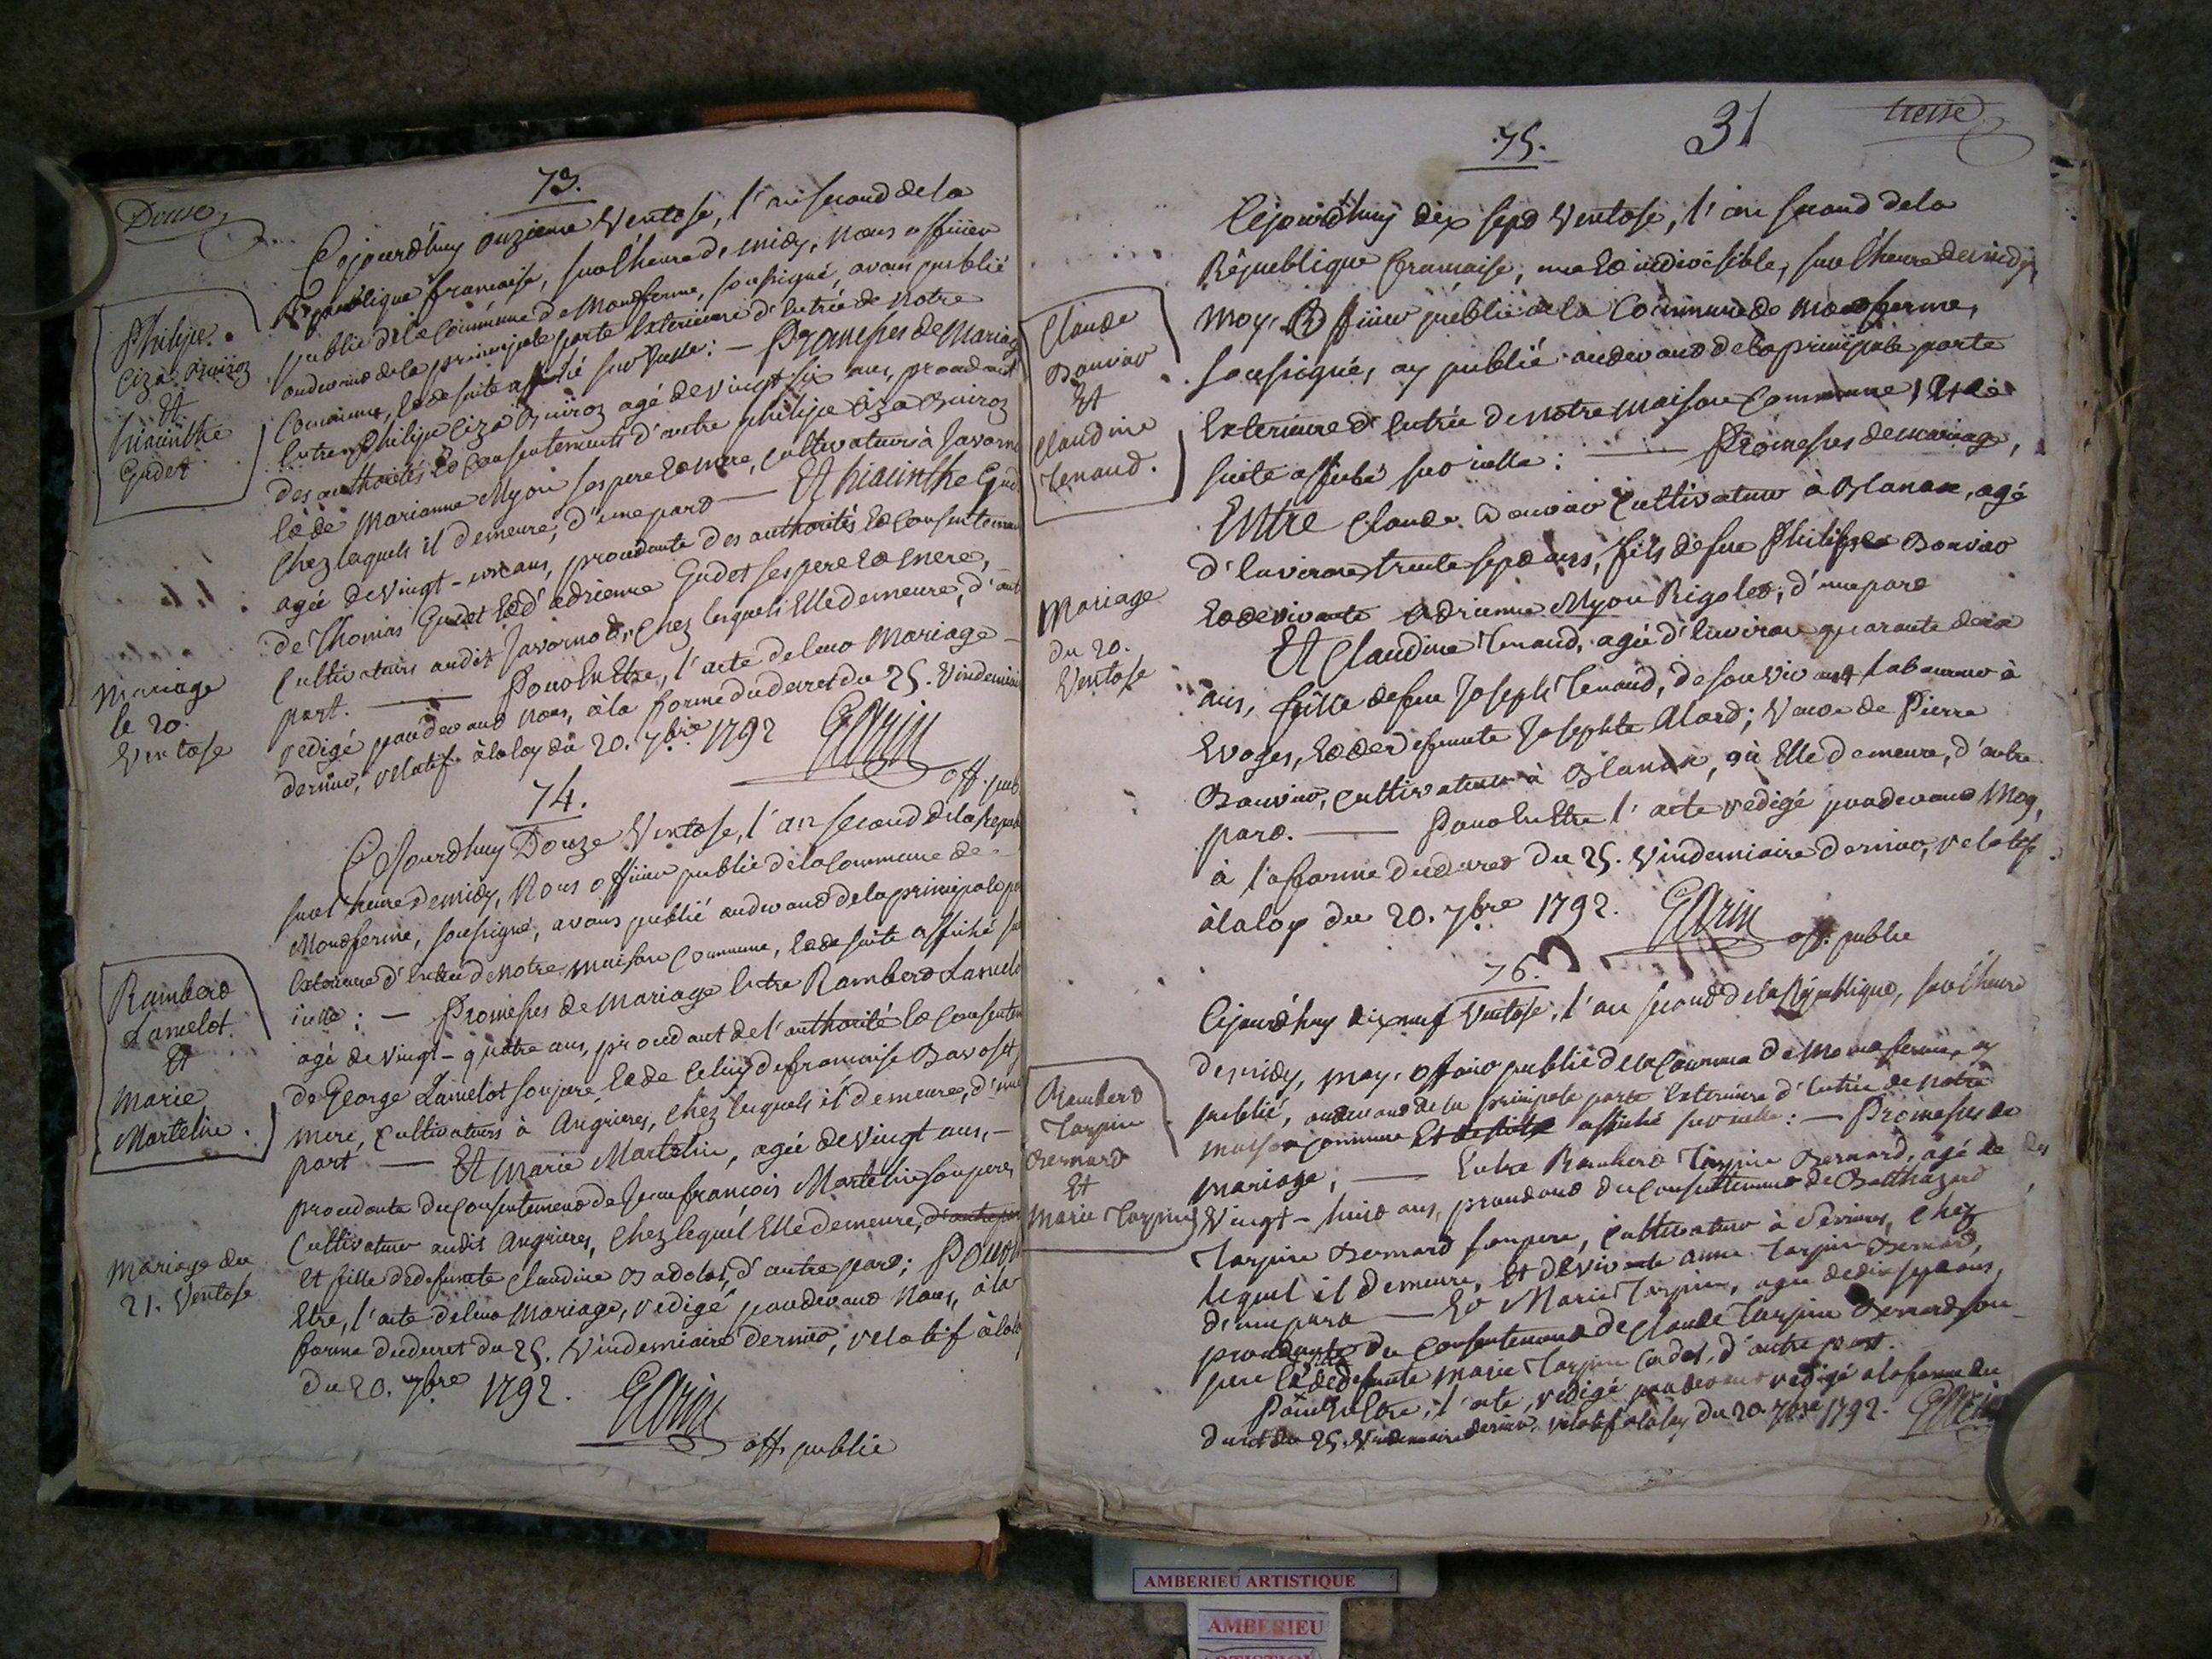 Douse
73.
Cejourd'huy onzieme Ventose, l'an second de la
République francaise, sur l'heure de midy, Nous officier
public de la Commune de Montferme, soussigné, avons publié
audevant de la principale porte Exterieure d'Entrée de Notre
Commune, et de suite affiché sur : — Promesses de Mariage
Entre Philipe Ciza Buiroz agé de vingt six ans, procedant
des authorités et Consentements d'autre philipe Ciza Buiroz
et de Marianne Myon ses pere et mere, cultivateurs à Javorno
Chez laquels il demeure, d'une part — Et hiacinthe Gudet
agée de vingt-un ans, procedante des authorités et Consentemen
de Thomas Gudet et d'adrienne Gudet ses pere et Mere,
Cultivateurs audit Javornod, Chez lesquels Elle demeure, d'aut
part. — Pour Entre, l'acte de leur Mariage
redigé pardevant Nous, à la forme du decret du 25. Vindemiaire
dernier, relatif à la loy du 20. 7bre 1792
off. pub
Philipe
Ciza Buiroz
Et
hiacinthe
Gudet
Mariage
le 20.
Ventose
74.
Cejourdhuy Douze Ventose, l'an second de la Repub
sur l'heure de midy, Nous officier public de la Commune de
Montferme, soussigné, avons publié audevant de la principale po
Exterieure d'Entrée de Notre maison Commune, et de suite affiché su
icelle : — Promesses de Mariage Entre Rambert Lamelot
agé de vingt-quatre ans, procedant de l'authorité et Consentem
de George Lamelot son pere, et de Celuy de francoise Bavoset
mere, Cultivateurs à Angrieres, Chez lesquels il demeure, d'une
part — Et Marie Martelin, agée de vingt ans,
procedante du Consentement de Jean francois Martelin son pere,
Cultivateur audit Angrieres, Chez lequel Elle demeure, d'autre par
Et fille de defuncte Claudine Badolat, d'autre part; Pour
Etre, l'acte de leur Mariage, redigé pardevant Nous, à la
forme du decret du 25. Vindemiaire dernier, relatif à la loy
du 20. 7bre 1792.
off. public
Rambert
Lamelot.
Et
Marie
Martelin.
Mariage du
21. Ventose
75.
31
treise
Cejourd'huy dix sept Ventose, l'an second de la
République francaise, une et indivisible, sur l'heure de midy,
Moy, Officier public de la Commune de Montferme,
soussigné, ay publié audevant de la principale porte
Exterieure d'Entrée de Notre maison Commune, et de
suite affiché sur icelle : — Promesses de mariage,
Entre Claude Bouvar Cultivateur à Blanax, agé
d'Environ trente sept ans, fils de feu Philipe Bouvar
et de vivante Adrienne Myon Rigolet, d'une part
Et Claudine Tenand, agée d'Environ quarante deux
ans, fille de feu Joseph Tenand, de son vivant laboureur à
Evoges, et de defuncte Josephte Alard; Veuve de Pierre
Bouvar, cultivateur à Blanax, où Elle demeure, d'autre
part. — Pour Entre l'acte redigé pardevant Moy,
à la forme du decret du 25. Vindemiaire dernier, relatif
à la loy du 20. 7bre 1792.
off. public
Claude
Bouvar
Et
Claudine
Tenand.
Mariage
du 20.
Ventose
76.
Cejourd'huy dix neuf Ventose, l'an second de la République, sur l'heure
de midy, moy, officier public de la Commune de Montferme, ay
publié, audevant de la principale porte Exterieure d'Entrée de notre
maison Commune Et de suite affiché sur icelle : — Promesses de
mariage, — Entre Rambert Tarpin Bernard, agé de
Vingt-huit ans, procedant du Consentement de Balthazard
Tarpin Bernard son pere, Cultivateur à Dévieux, Chez
lequel il demeure, Et de vivante anne Tarpin Bernard,
d'une part — Et Marie Tarpin, agée de dix sept ans,
procedante du Consentement de Claude Tarpin Bernard son
pere et de defuncte Marie Tarpin Cadet, d'autre part.
Pour Entre, l'acte, redigé pardevant redigé a la forme du
decret du 25. Vindemiaire dernier, relatif a la loy du 20. 7bre 1792.
Rambert
Tarpin
Bernard
Et
Marie Tarpin
AMBERIEU ARTISTIQUE
AMBERIEU
ARTISTIQUE